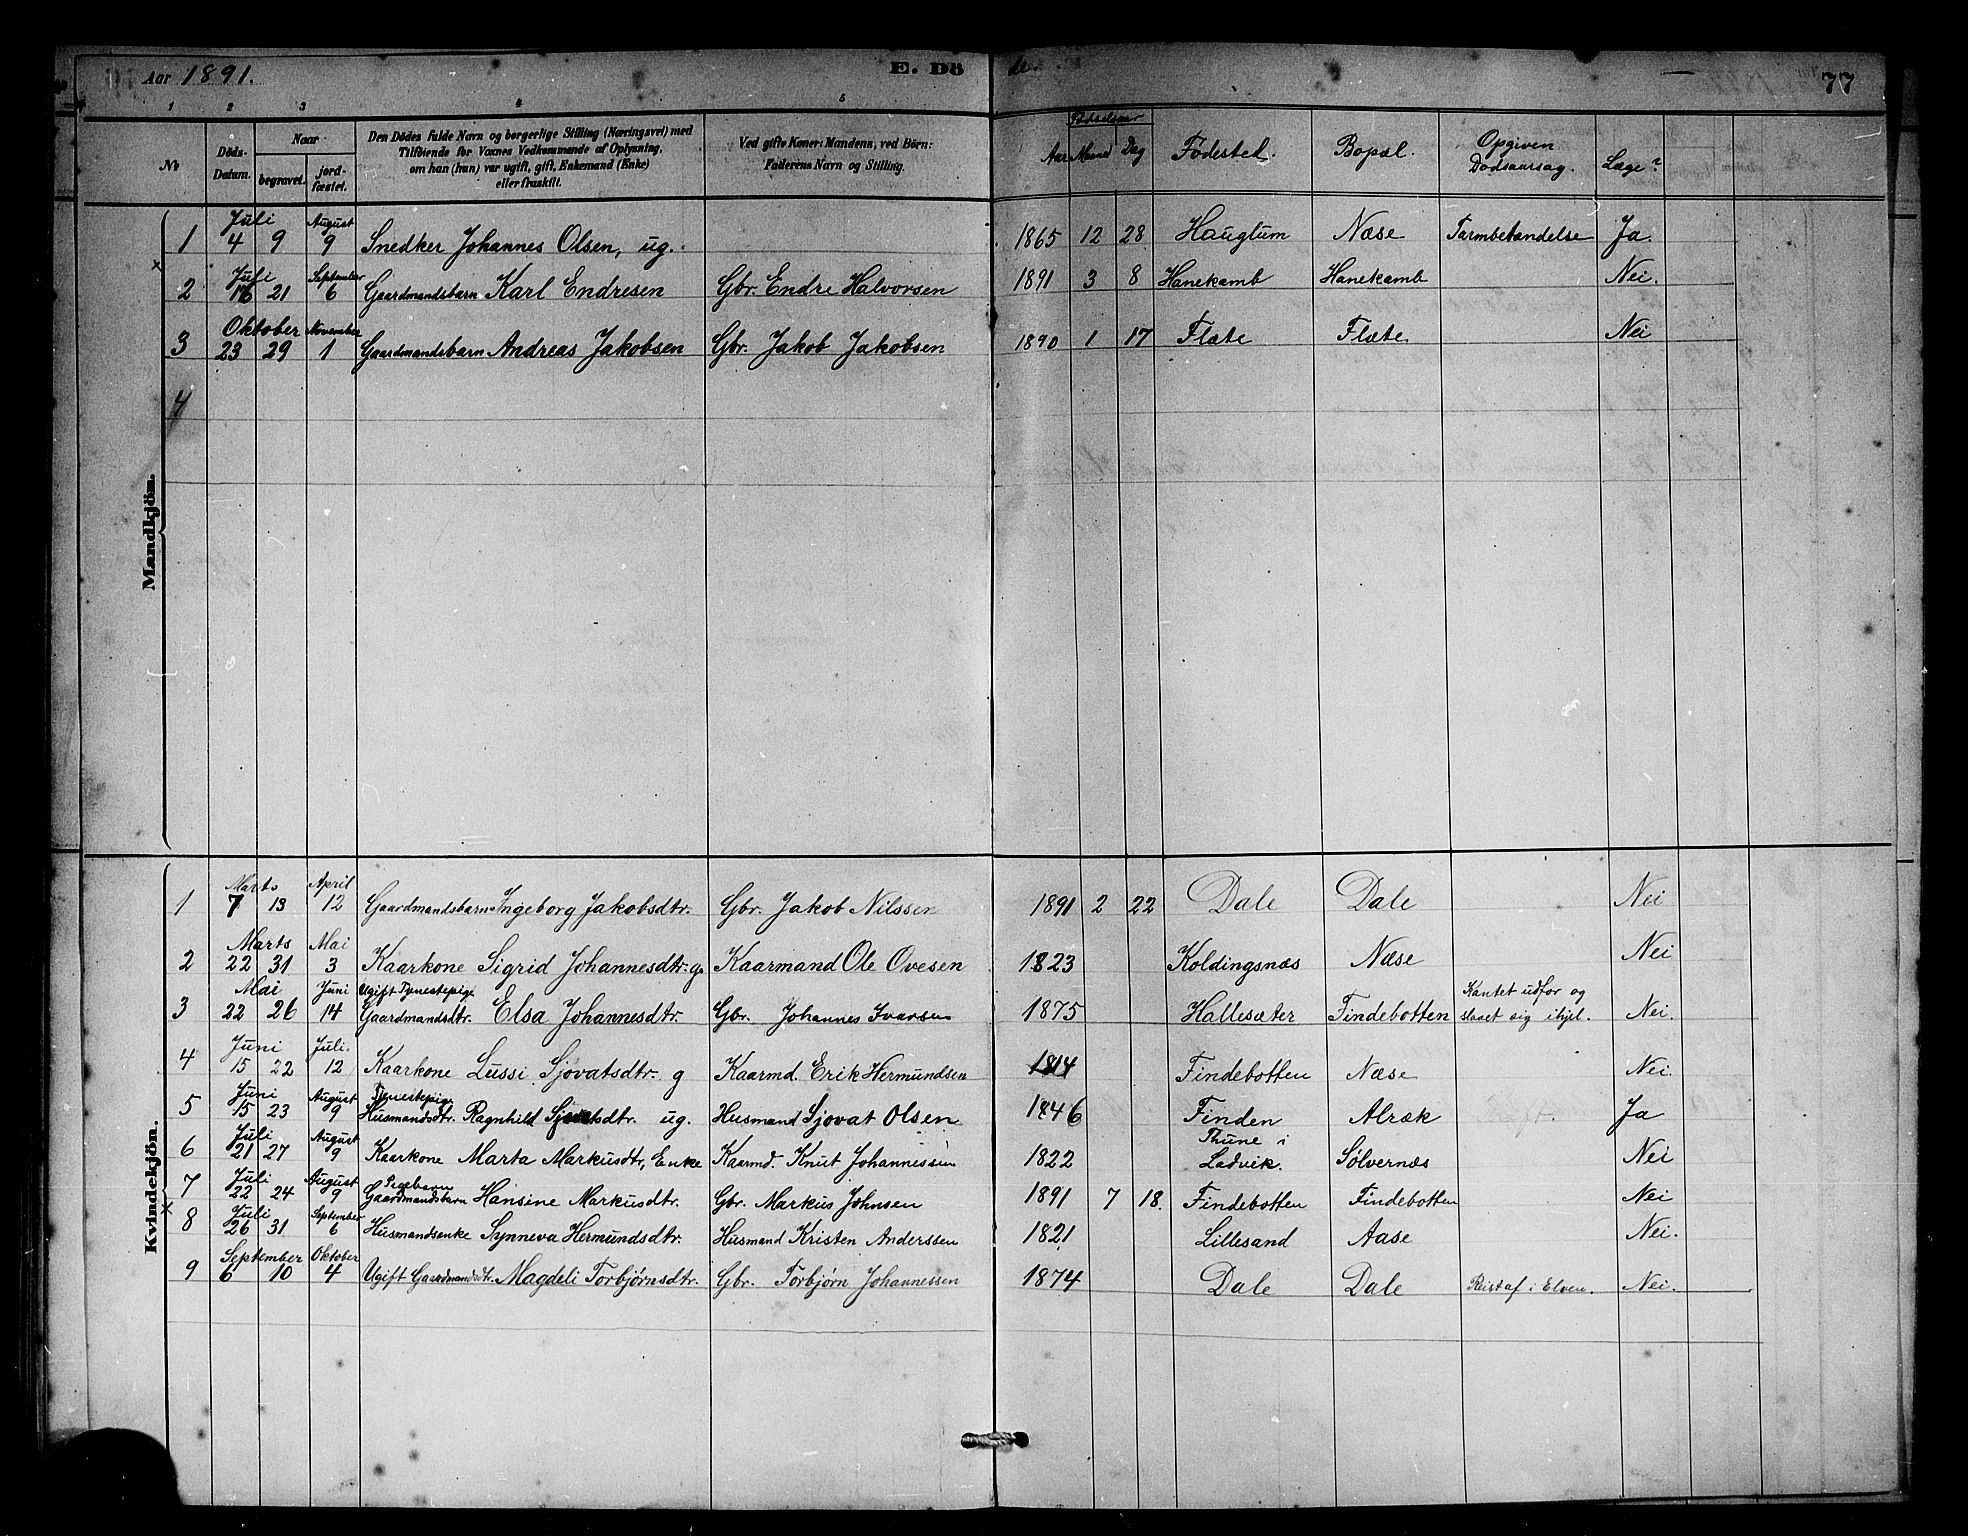 Aar 1891. E. Döde. 77
1 2 3 4 5
No Döds-Datum. Naar begravet. jordfæstet. Den Dödes fulde Navn og borgerlige Stilling (Næringsvei) med Tilföiende for Voxnes Vedkommende af Oplysning, om han (hun) var ugift, gift, Enkemand (Enke) eller fraskilt. Ved gifte Koner: Mandens, ved Börn: Faderens Navn og Stilling. Fødselsaar Aar Maaned Dag Fødested. Bopæl. Opgiven Dødsaarsag. Læge?
Mandkjön.
1 Juli 4 9 August 9 Snedker Johannes Olsen, ug. 1865 12 28 Hauglum Næse Tarmbetændelse Ja.
2 Juli 16 21 September 6 Gaardmandsbarn Karl Endresen Gbr. Endre Halvorsen 1891 3 8 Hanekamb Hanekamb Nei.
3 Oktober 23 29 November 1 Gaardmandsbarn Andreas Jakobsen Gbr. Jakob Jakobsen 1890 1 17 Flæte Flæte. Nei
4
Kvindekjön.
1 Marts 7 13 April 12 Gaardmandsbarn Ingeborg Jakobsdtr. Gbr. Jakob Nilssen 1891 2 22 Dale Dale Nei
2 Marts 22 31 Mai 3 Kaarkone Sigrid Johannesdtr. g. Kaarmand Ole Ovesen 1823 Koldingsnæs Næse Nei
3 Mai 22 26 Juni 14 Ugift Tjenestepige Gaardmandsdtr. Elsa Johannesdtr. Gbr. Johannes Ivarsen 1875 Hallesæter Findebotten Kantet udfor og slaaet sig ihjel. Nei.
4 Juni 15 22 Juli. 12 Kaarkone Lussi Sjovatsdtr. g Kaarmd. Erik Hermundsen 1814 Findebotten Næse Nei
5 Juni 15 23 August 9 Tjenestepige Husmandsdtr. Ragnhild Sjovatsdtr. ug. Husmand Sjovat Olsen 1846 Finden Alræk Ja
6 Juli 21 27 August 9 Kaarkone Marta Markusdtr, Enke Kaarmd. Knut Johannessen 1822 Thune i Ladvik. Sølvernæs Nei
7 Juli 22 24 August 9 Pigebarn Gaardmandsbarn Hansine Markusdtr. Gbr. Markus Johnsen 1891 7 18. Findebotten Findebotten Nei
8 Juli 26 31 September 6 Husmandsenke Synneva Hermundsdtr. Husmand Kristen Anderssen 1821 Lillesand Aase Nei.
9 September 6 10 Oktober 4 Ugift Gaardmandsdtr. Magdeli Torbjørnsdtr. Gbr. Torbjørn Johannessen 1874 Dale Dale Reist af i Elven. Nei.